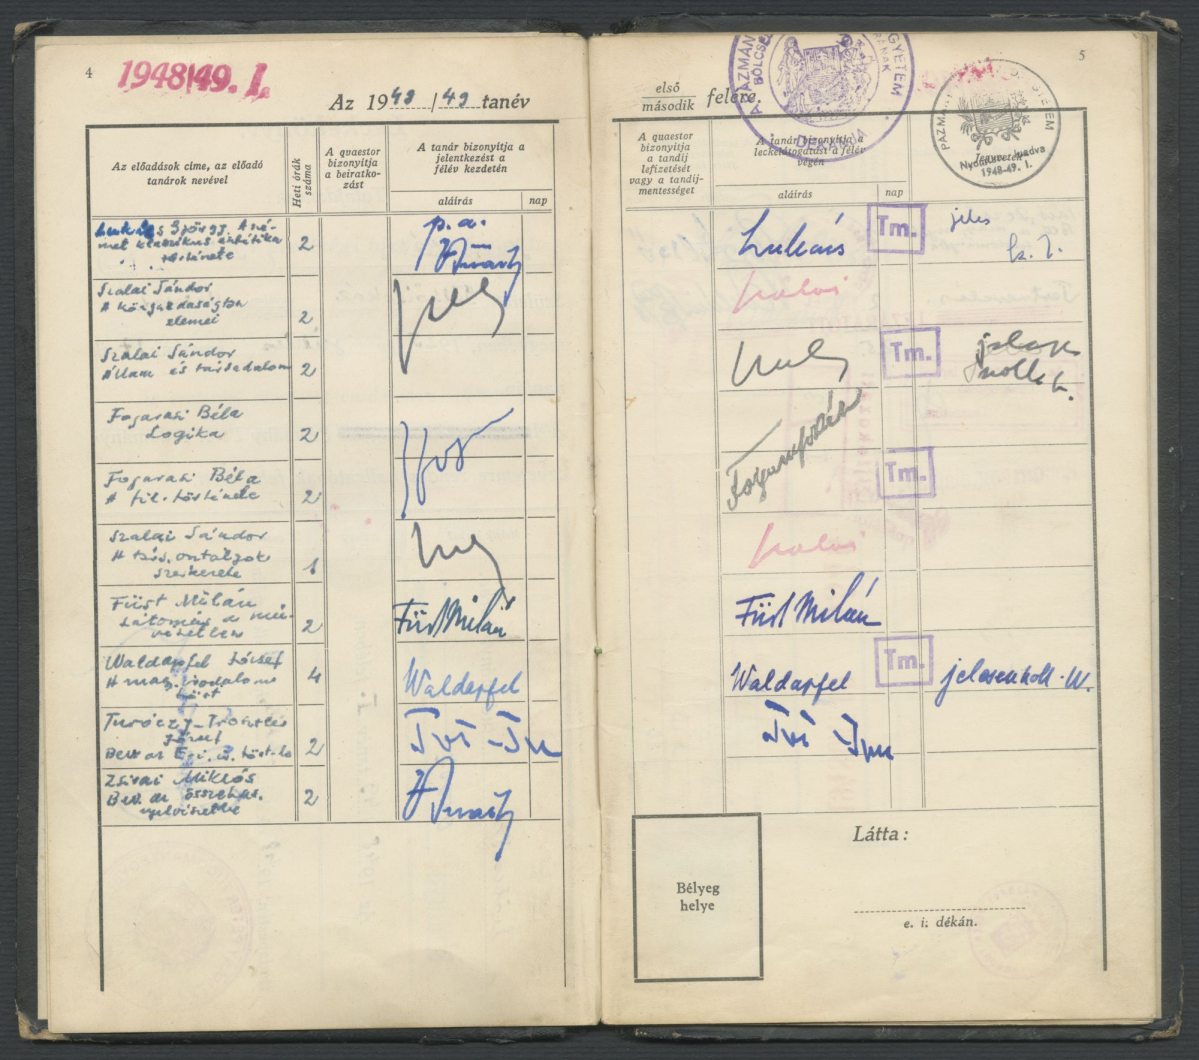 4
1948/49. I.
Az 1948/49 tanév
Az előadások címe, az előadó
tanárok nevével
Heti órák
száma
A quaestor
bizonyítja
a beiratko-
zást
A tanár bizonyítja a
jelentkezést a
félév kezdetén
aláírás
nap
Lukács György A né-
met klasszikus esztétika
története
2
p. a.
Szalai Sándor
A közgazdaságtan
elemei
2
Szalai Sándor
Állam és társadalom
2
Fogarasi Béla
Logika
2
Fogarasi Béla
A fil. története
2
Szalai Sándor
A társ. osztályok
szerkezete
1
Füst Milán
Látomás a mű-
vészetben
2
Füst Milán
Waldapfel József
A mag. irodalom
tört
4
Waldapfel
Turóczy-Trostler
József
2
Zsirai Miklós
Bev. az összehas.
nyelvészetbe
2
5
első
második
felére.
A quaestor
bizonyítja
a tandíj
lefizetését
vagy a tandíj-
mentességet
A tanár bizonyítja a
leckelátogatást a félév
végén
aláírás
nap
DÉKÁNJA
1948-49. I.
Lukács
Tm.
jeles
Szalai
Tm.
Tm.
Szalai
Füst Milán
Waldapfel
Tm.
jelesen koll. W.
Bélyeg
helye
Látta :
e. i. dékán.